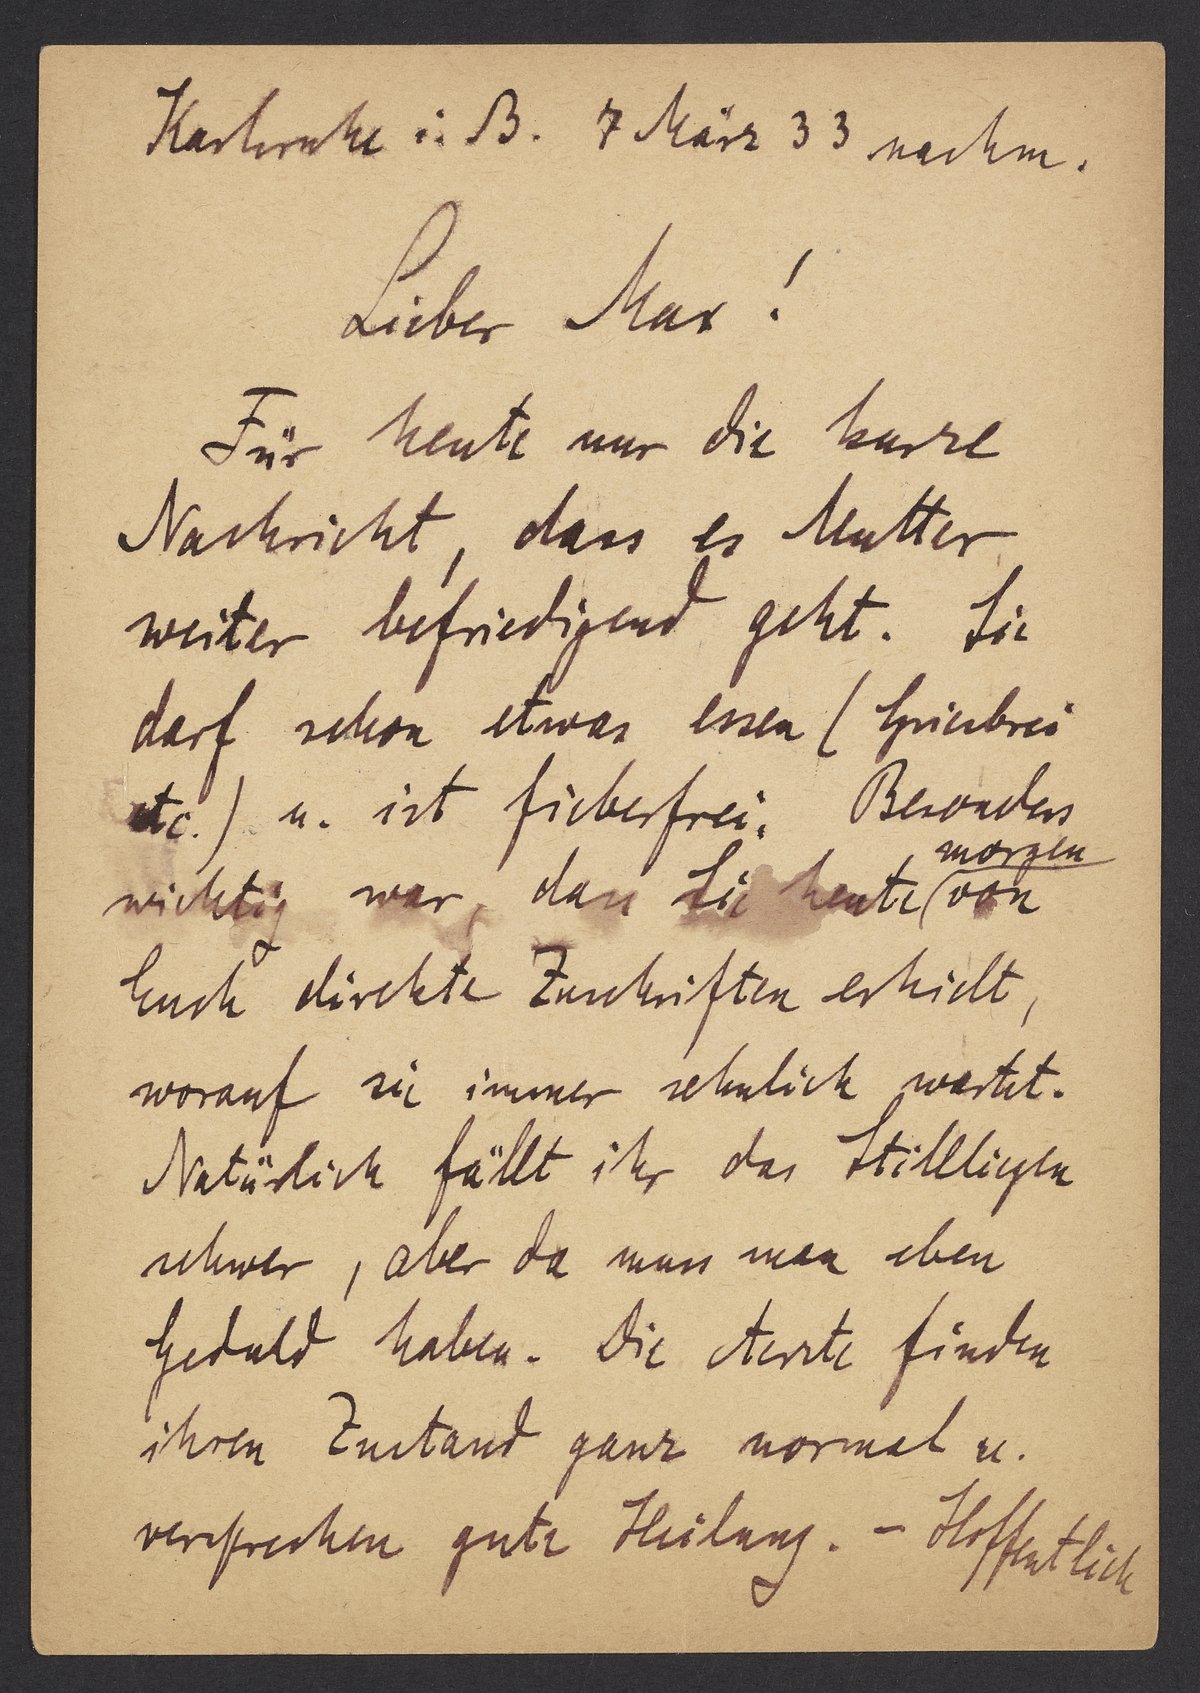 Karlsruhe i. B. 7 März 33 nachm.
Lieber Max!
Für heute nur die kurze
Nachricht, dass es Mutter
weiter befriedigend geht. Sie
darf schon etwas essen (Griesbrei
etc.) u. ist fieberfrei. Besonders
morgen
wichtig war, dass Sie heute (von
Euch direkte Zuschriften erhielt,
worauf sie immer sehnlich wartet.
Natürlich fällt ihr das Stillliegen
schwer, aber da muss man eben
Geduld haben. Die Aerzte finden
ihren Zustand ganz normal u.
versprechen gute Heilung. – Hoffentlich